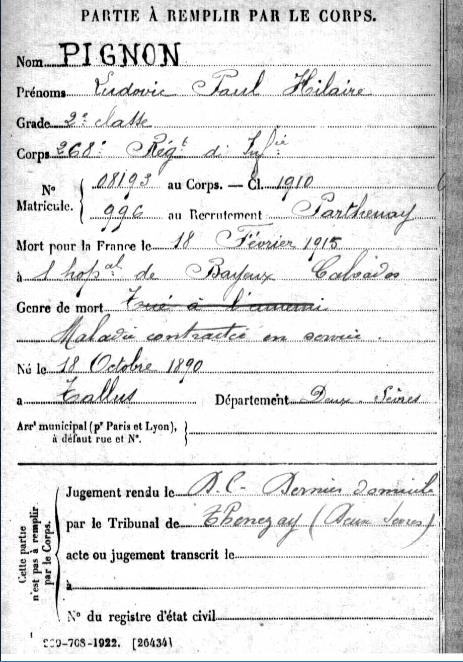 PARTIE À REMPLIR PAR LE CORPS.
Nom PIGNON
Prénoms Ludovic Paul Hilaire
Grade 2e classe
Corps 268e Régt d'Infie
No Matricule. { 08193 au Corps. — Cl. 1910
996 au Recrutement Parthenay
Mort pour la France le 18 Février 1915
à l'hopal de Bayeux Calvados
Genre de mort Tué à l'ennemi
Maladie contractée en service.
Né le 18 Octobre 1890
à Tallus Département Deux-Sèvres
Arrt municipal (pr Paris et Lyon), à défaut rue et No.
Cette partie n'est pas à remplir par le Corps.
Jugement rendu le D.C- Dernier domicile
par le Tribunal de Thenezay (Deux Sevres)
acte ou jugement transcrit le
à
No du registre d'état civil
-708-1922. [26434]